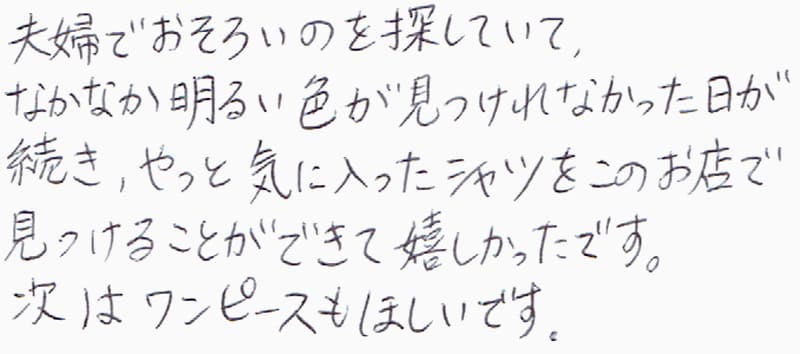 夫婦でおそろいのを探していて,
なかなか明るい色が見つけれなかった日が
続き,やっと気に入ったシャツをこのお店で
見つけることができて嬉しかったです。
次はワンピースもほしいです.